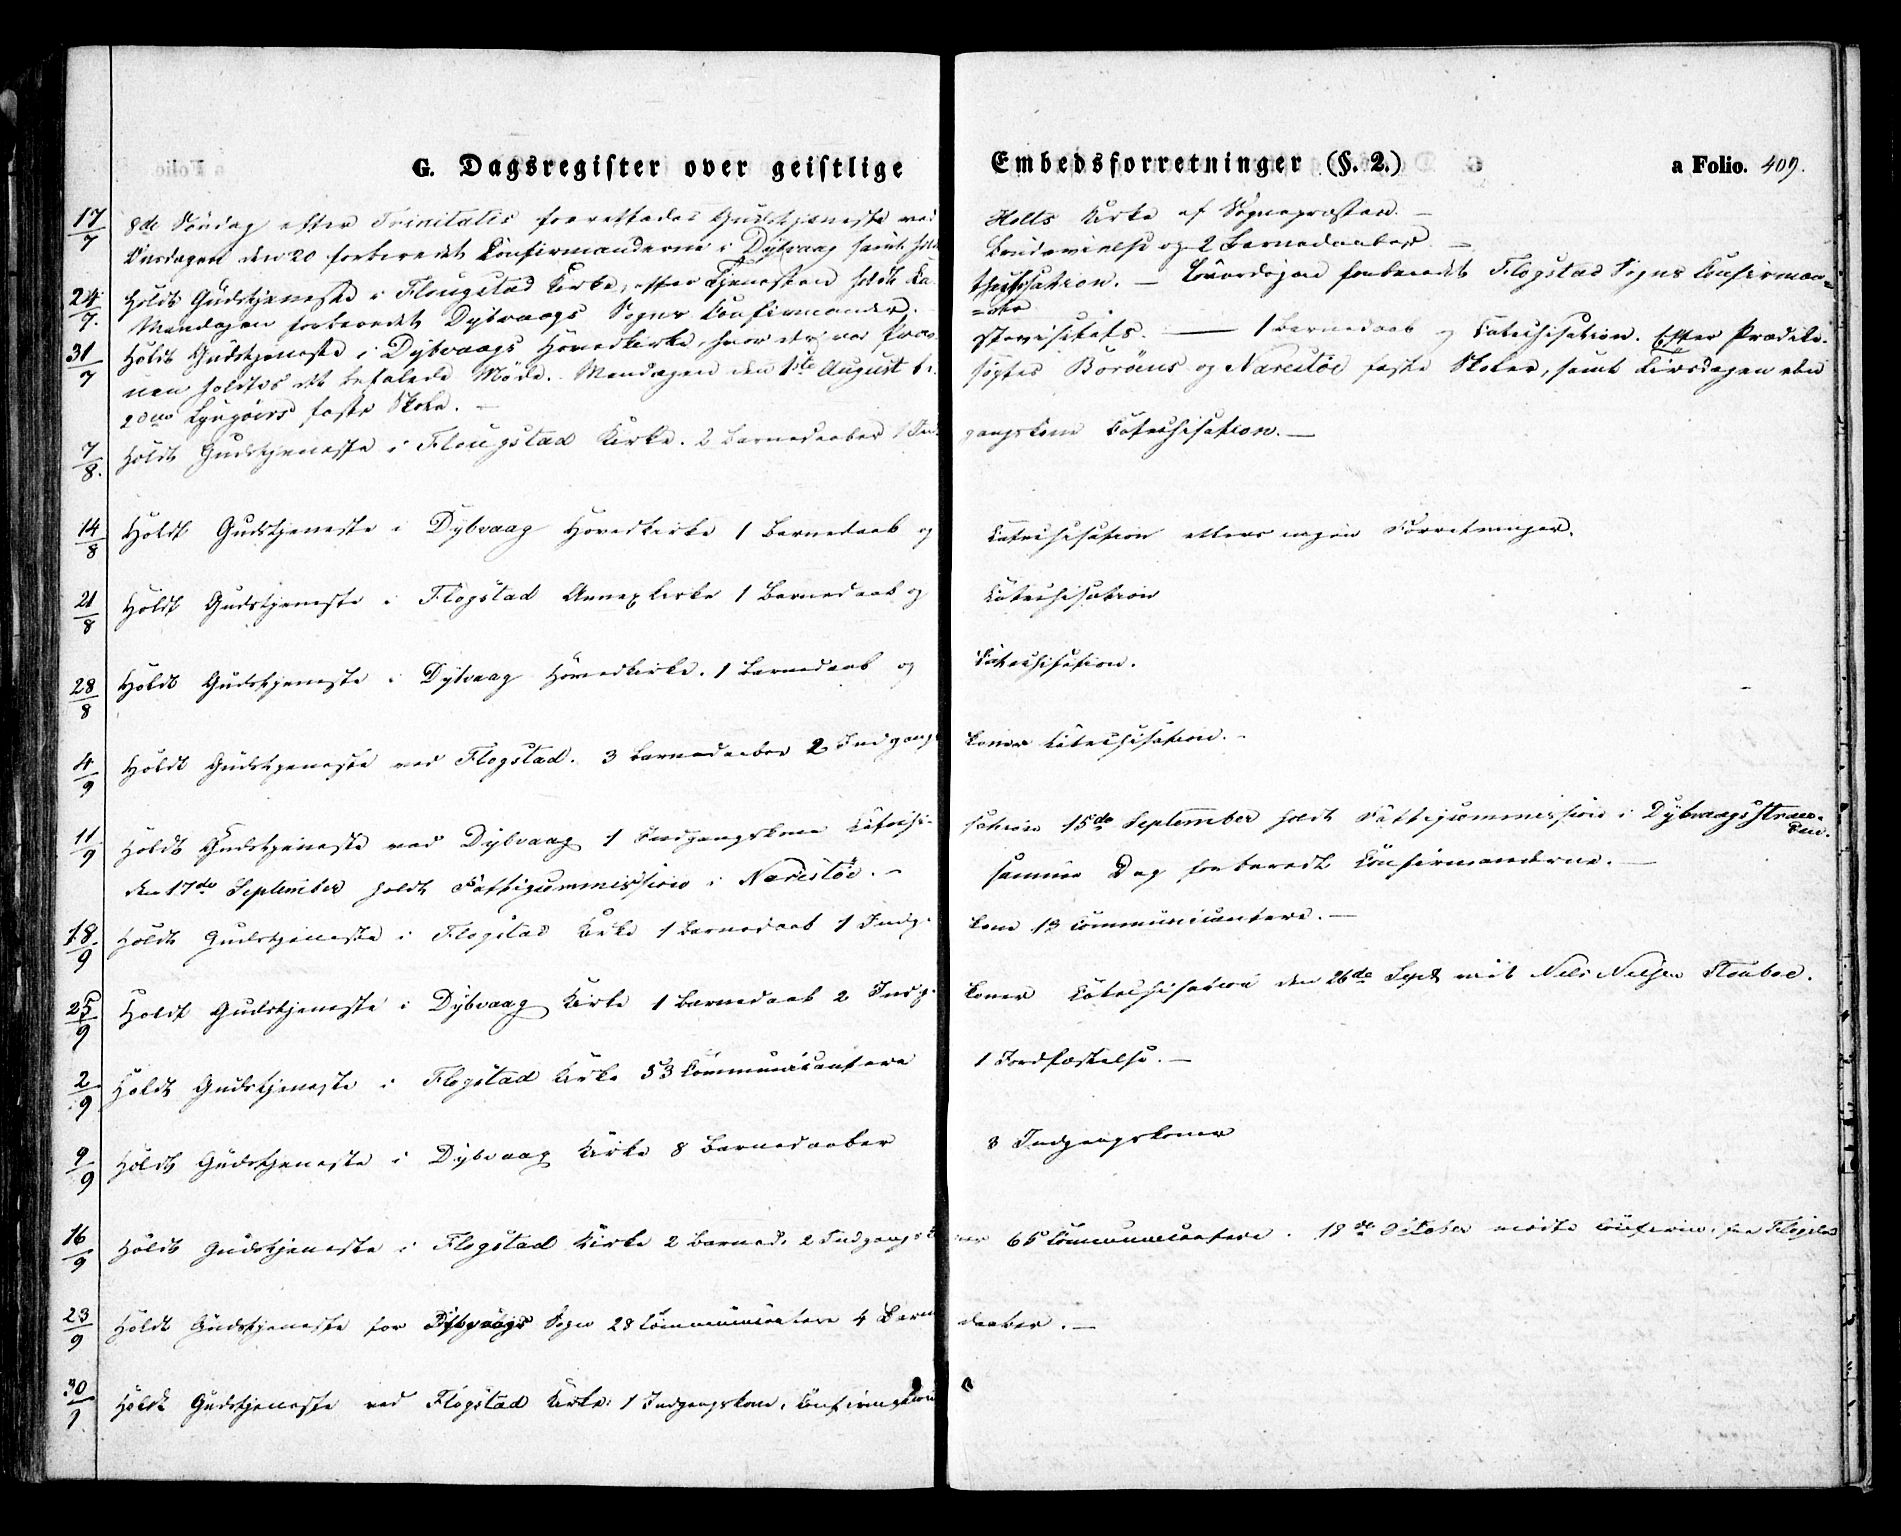 G. Dagsregister over geistlige Embedsforretninger (§. 2.) a Folio. 409.
17/7 8de Søndag efter Trinitatis forrettedes Gudstjeneste ved Holts Kirke af Sognepræsten. —
Onsdagen den 20 forberedt Confirmanderne i Dybvaag samt holdt Brudevielse og 2 Barnedaaber. —
24/7. Holdt Gudstjeneste i Flougstad Kirke, efter Tjenesten holdt Ca- thechisation. — Løverdagen forberedt Flogstad Sogns Confirman=
=der
Mandagen forberedt Dybvaags Sogns Confirmander.
31/7 Holdt Gudstjeneste i Dybvaags Hovedkirke, hvor der var Prov- stevisitats. — 1 Barnedaab og Catechisation. Efter Prædike-
nen holdtes det befalede Møde. Mandagen den 1ste August be- søgtes Borøens og Narestøe faste Skoler, samt Tirsdagen den
2den Lyngøers faste Skole. —
7/8. Holdt Gudstjeneste i Flougstad Kirke. 2 Barnedaaber 1 Ind- gangskone Catechisation. —
14/8 Holdt Gudstjeneste i Dybvaag Hovedkirke 1 Barnedaab og Catechisation ellers ingen Forretninger.
21/8 Holdt Gudstjeneste i Flogstad Annexkirke 1 Barnedaab og Catechisation
28/8 Holdt Gudstjeneste i Dybvaag Hovedkirke. 1 Barnedaab og Catechisation.
4/9 Holdt Gudstjeneste ved Flogstad. 3 Barnedaaber 2 Indgangs- koner Catechisation. -
11/9 Holdt Gudstjeneste ved Dybvaag 1 Indgangskone Catechi- sation 15de September holdt Fattigcommission i Dybvaagsstran-
den.
den 17de September holdt Fattigcommission i Narestöe. - samme Dag forberedt Confirmanderne. —
18/9 Holdt Gudstjeneste i Flogstad Kirke 1 Barnedaab 1 Indg- kone 13 Communicantere. —
25/9 Holdt Gudstjeneste i Dybvaag Kirke 1 Barnedaab 2 Indg- koner Catechisation den 26de Sept viet Nils Nilsen
2/9 Holdt Gudstjeneste i Flogstad Kirke 53 Communicantere 1 Jordfæstelse. —
9/9 Holdt Gudstjeneste i Dybvaag Kirke 8 Barnedaaber 8 Indgangskoner
16/9 Holdt Gudstjeneste i Flogstad Kirke 2 Barned. 2 Indgangsk oner 65 Communicantere. 18de October mødte Confirm. fra Flogstad
23/9 Holdt Gudstjeneste for Dybvaags Sogn 28 Communicantere 4 Barne daaber. —
30/9 Holdt Gudstjeneste ved Flogstad Kirke. 1 Indgangskone,